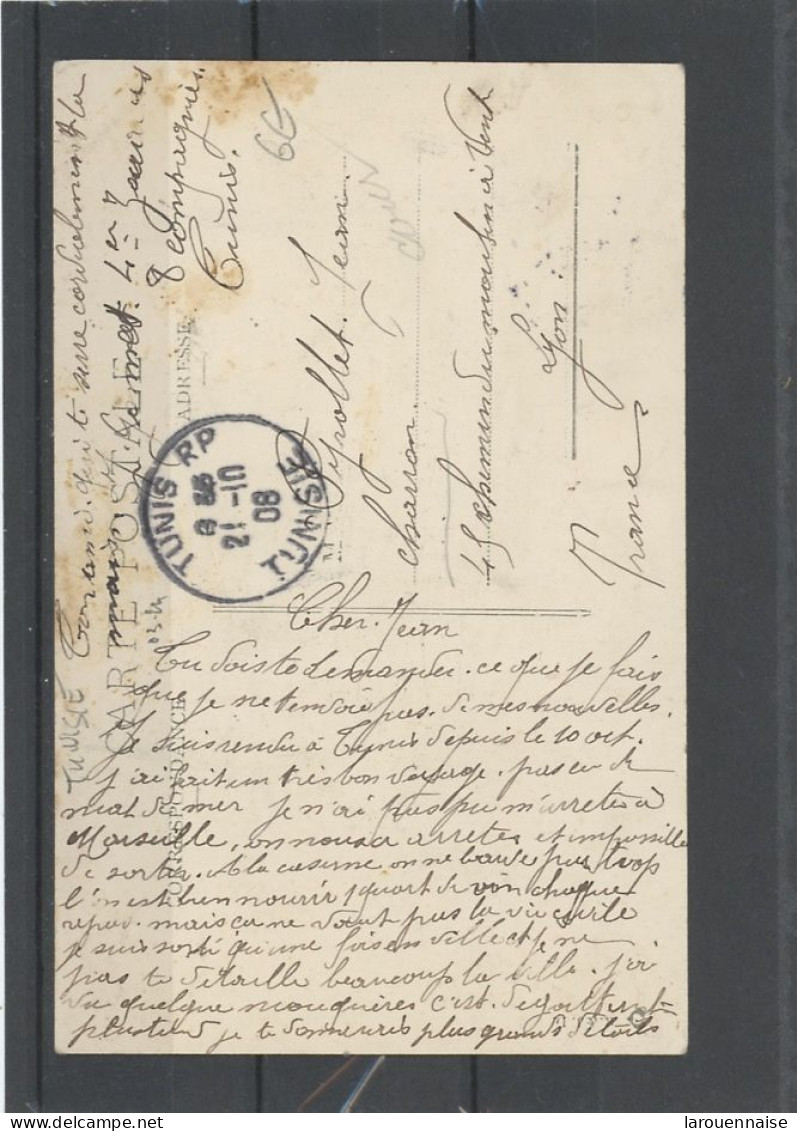 CARTE POSTALE
CORRESPONDANCE
ADRESSE
TUNIS RP
21-10
08
TUNISIE
TUNISIE
M. Peyrollet. Jean.
charron.
45 chemin du moulin à Vent
Lyon.
France
Cher. Jean
Tu dois te demander. ce que je fais
que je ne t'envoie pas. de mes nouvelles.
Je suis rendu à Tunis depuis le 10 oct.
j'ai fait un très bon voyage. pas eu de
mal de mer je n'ai pas pu m'arreter à
Marseille, on nous a arreter et impossible
de sortir. A la caserne on ne barde pas trop
l'on est bien nourrir 1 quart de vin chaque
repas. mais ça ne vaut pas la vie civile
je suis sorti qu'une fois en ville et je ne
pas te détaille beaucoup la ville. j'ai
vu quelque mouquères c'est. dégoûtant
plus tard je te donnerais plus grands détails
Ton ami. qui te serre cordialement la
main.
4e Zouaves
8 compagnie.
Tunis.
6E
larouennaise